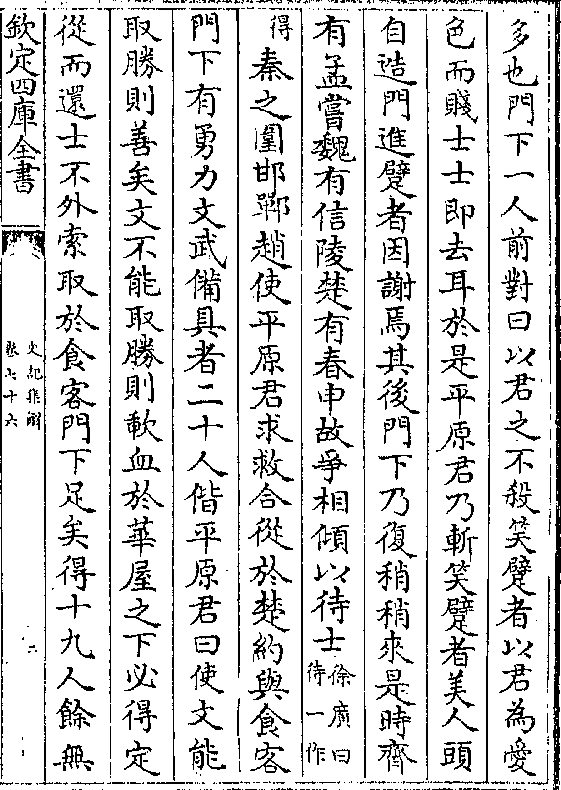 多也門下一人前對曰以君之不殺笑躄者以君為愛
色而賤士士即去耳於是平原君乃斬笑躄者美人頭
自造門進躄者因謝焉其後門下乃復稍稍來是時齊
有孟嘗魏有信陵楚有春申故爭相傾以待士徐廣曰待一作
得秦之圍邯鄲趙使平原君求救合從於楚約與食客
門下有勇力文武備具者二十人偕平原君曰使文能
取勝則善矣文不能取勝則歃血於華屋之下必得定
從而還士不外索取於食客門下足矣得十九人餘無
欽定四庫全書
史記集解
卷七十六
二